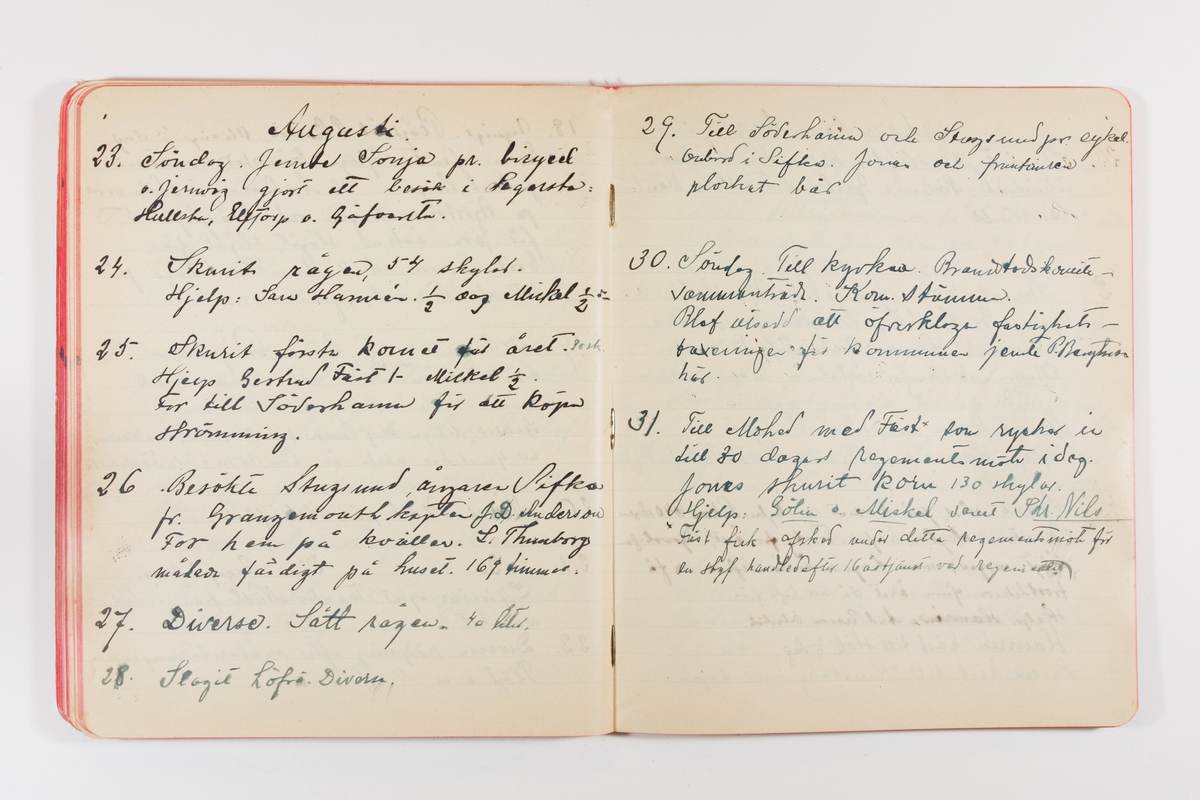 Augusti.
23. Söndag. Jemte Sonja pr. bicycel
o. jernväg gjort ett besök i Segersta:
Hullsta, Elftorp o.
24. Skurit rågen, 54 skylar.
Hjelp: Sara Hamrén. 1/2 dag Mickel 1/2
25. Skurit första kornet för året.
Hjelp Gertrud Fäst 1- Mickel 1/2.
For till Söderhamn för att köpa
strömming.
26 Besökte Stugsund, ångaren Sifka
fr. Grangemouth kapten J. D. Anderson
For hem på kvällen. L. Thunborg
målade färdigt på huset. 169 timmar.
27. Diverse. Sått rågen. 40 liter.
28. Slagit höfrö. Divers.
29. Till Söderhamn och Stugsund pr. cykel.
Ombord i Sifka. Jonas och fruntimren
plockat bär
30. Söndag. Till kyrkan. Brandstodskomite-
sammanträde. Kom. stämma.
Blef utsedd att öfverklaga fastighets-
taxeringen för kommunen jemte P. Bengtson
här.
31. Till Mohed med Fäst* som rycker in
till 30 dagars regementsmöte i dag.
Jonas skurit korn 130 skylar.
Hjelp: Gölin o. Mickel samt Skr. Nils
* Fäst fick afsked under detta regementsmöte för
en styf handled efter 16 års tjänst vid regementet